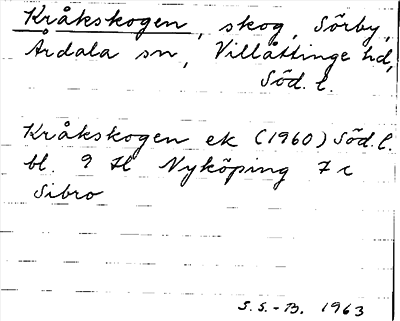 Kråkskogen, skog, Sörby,
Årdala sn, Villåttinge hd,
Söd. l.
Kråkskogen ek (1960) Söd. l.
bl. 9 H Nyköping 7 c
Sibro
S.S.-B. 1963